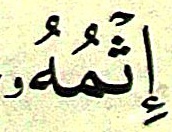 إِثۡمُهُۥ